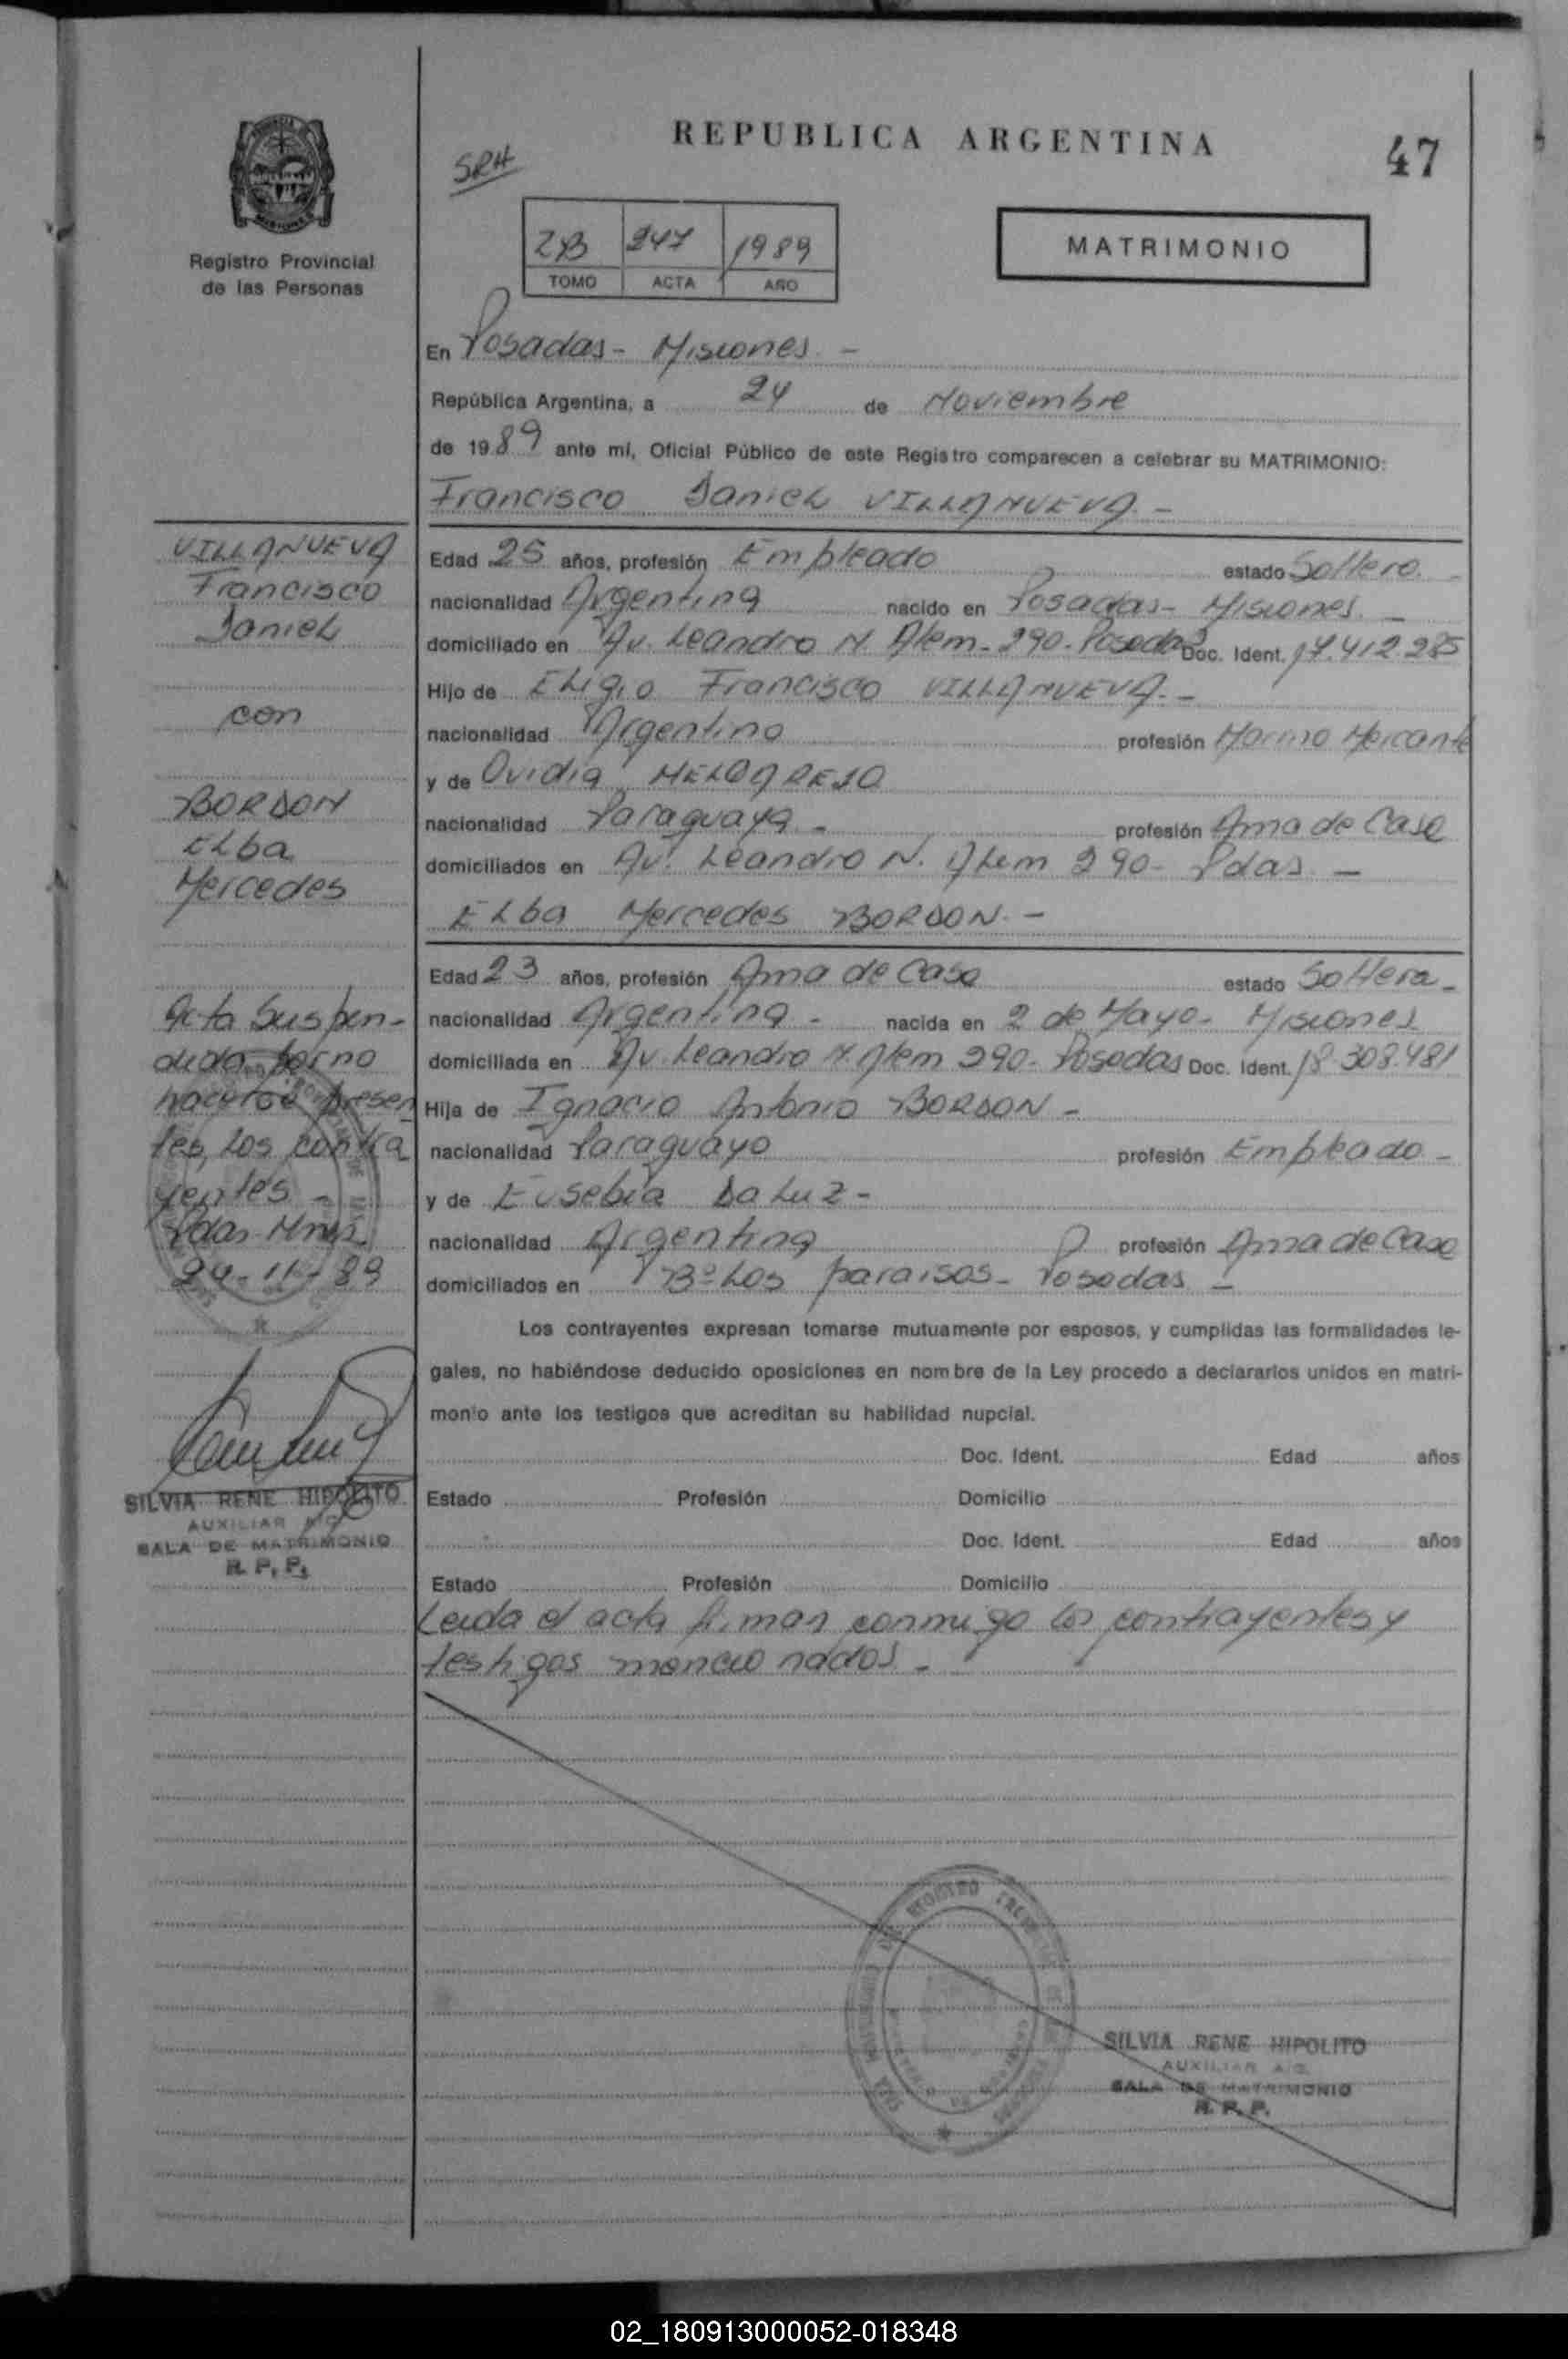 REPUBLICA ARGENTINA
47
SRH
Registro Provincial
de las Personas
2B 247 1989
TOMO ACTA AÑO
MATRIMONIO
En Posadas - Misiones. -
República Argentina, a 24 de Noviembre
de 1989 ante mí, Oficial Público de este Registro comparecen a celebrar su MATRIMONIO:
Francisco Daniel VILLANUEVA. -
VILLANUEVA
Francisco
Daniel
con
BORDON
Elba
Mercedes
Acta Suspen-
dida por no
hacerse presen
tes, los contra
yentes -
Pdas. Mnes.
24-11-89
SILVIA RENE HIPOLITO
AUXILIAR A/C
SALA DE MATRIMONIO
R. P. P.
Edad 25 años, profesión Empleado estado Soltero. -
nacionalidad Argentina nacido en Posadas - Misiones. -
domiciliado en Av. Leandro N. Alem - 290 - Posadas Doc. Ident. 17.412.285
Hijo de Eligio Francisco VILLANUEVA. -
nacionalidad Argentino profesión Marino Mercante
y de Ovidia MELGAREJO
nacionalidad Paraguaya - profesión Ama de Casa
domiciliados en Av. Leandro N. Alem 290 - Pdas. -
Elba Mercedes BORDON. -
Edad 23 años, profesión Ama de Casa estado Soltera -
nacionalidad Argentina - nacida en 2 de Mayo - Misiones
domiciliada en Av. Leandro N. Alem 290 - Posadas Doc. Ident. 18.308.481
Hija de Ignacio Antonio BORDON -
nacionalidad Paraguayo profesión Empleado -
y de Eusebia Da Luz -
nacionalidad Argentina profesión Ama de Casa
domiciliados en Bº Los paraisos - Posadas -
Los contrayentes expresan tomarse mutuamente por esposos, y cumplidas las formalidades le-
gales, no habiéndose deducido oposiciones en nombre de la Ley procedo a declararlos unidos en matri-
monio ante los testigos que acreditan su habilidad nupcial.
Doc. Ident. Edad años
Estado Profesión Domicilio
Doc. Ident. Edad años
Estado Profesión Domicilio
Leida el acta firman conmigo los contrayentes y
testigos mencionados -
SILVIA RENE HIPOLITO
AUXILIAR A/C
SALA DE MATRIMONIO
R. P. P.
02_180913000052-018348